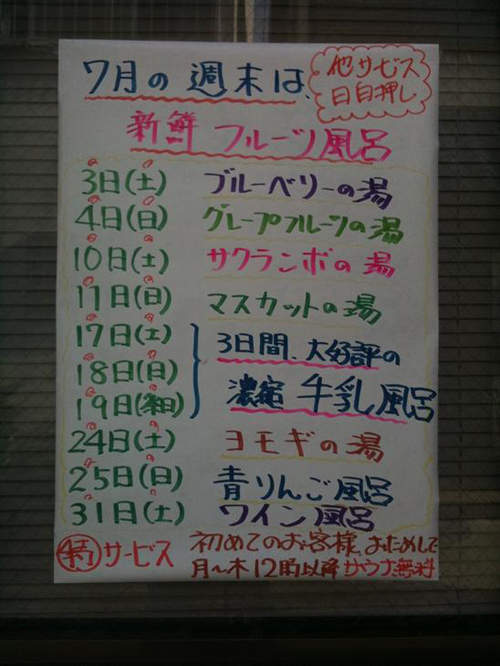 7月の週末は、
他サービス
日目押し
新鮮フルーツ風呂
3日(土) ブルーベリーの湯
4日(日) グレープフルーツの湯
10日(土) サクランボの湯
11日(日) マスカットの湯
17日(土)
18日(日)
19日(祝日)
3日間、大好評の
濃縮牛乳風呂
24日(土) ヨモギの湯
25日(日) 青りんご風呂
31日(土) ワイン風呂
特サービス 初めてのお客様、おためしで
月〜木12時以降サウナ無料